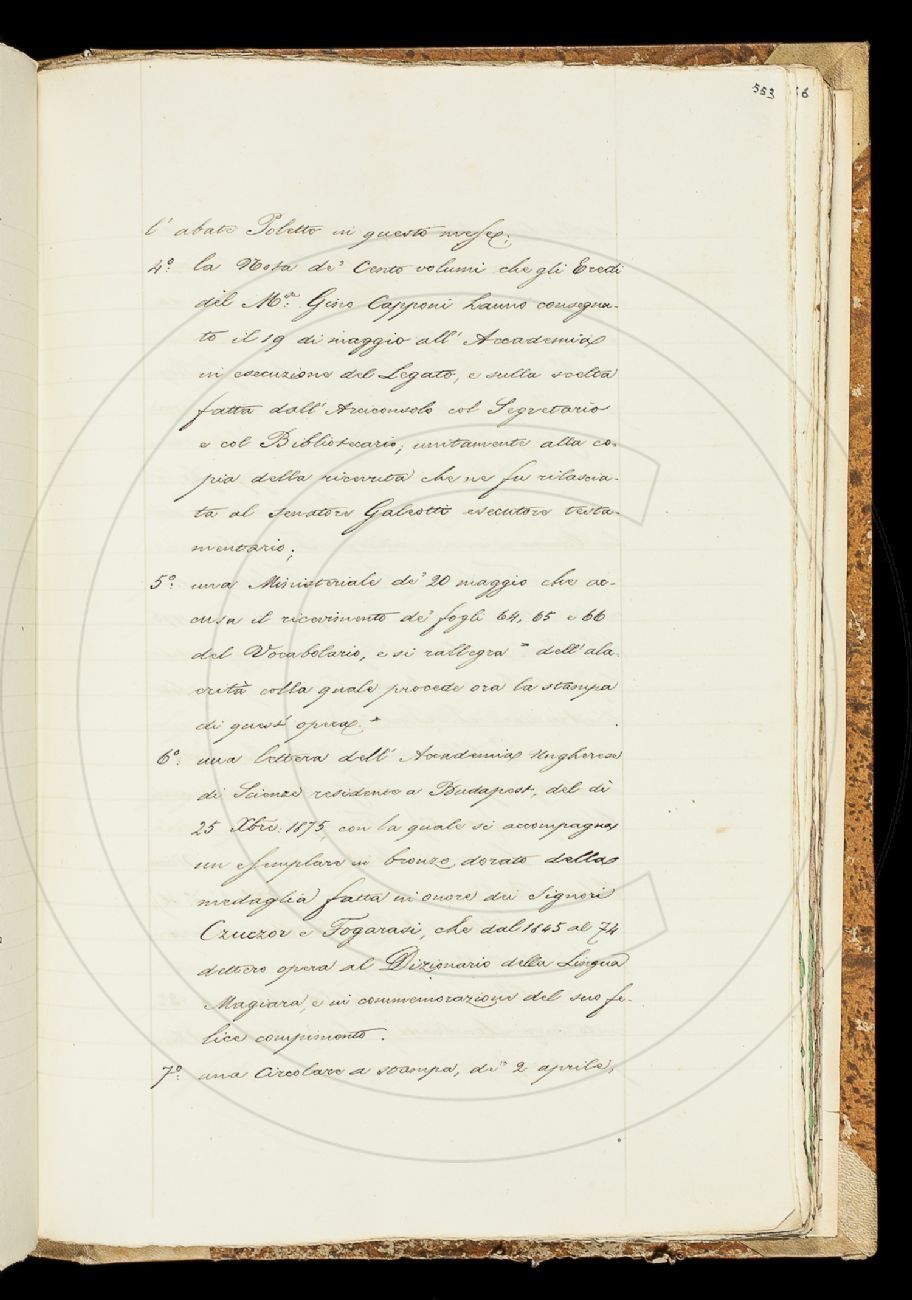 553
l' abate Poletto in questo mese;
4º. la Nota de' Cento volumi che gli Eredi
del M.se Gino Capponi hanno consegna-
to il 19 di maggio all' Accademia
in esecuzione del Legato, e sulla scelta
fatta dall' Arciconsolo col Segretario
e col Bibliotecario; unitamente alla co-
pia della ricevuta che ne fu rilascia-
ta al Senatore Galeotti esecutore testa-
mentario;
5º. una Ministeriale de' 20 maggio che ac-
cusa il ricevimento de' fogli 64, 65 e 66
del Vocabolario, e si rallegra " dell' ala-
crità colla quale procede ora la stampa
di quest' opera. "
6º. una lettera dell' Accademia Ungherese
di Scienze residente a Budapest, del dì
25 Xbre. 1875, con la quale si accompagna
un esemplare in bronzo dorato della
medaglia fatta in onore dei Signori
Czuczor e Fogarasi, che dal 1845 al 74
dettero opera al Dizionario della Lingua
Magiara, e in commemorazione del suo fe-
lice compimento.
7º. una Circolare a stampa, de' 2 aprile,